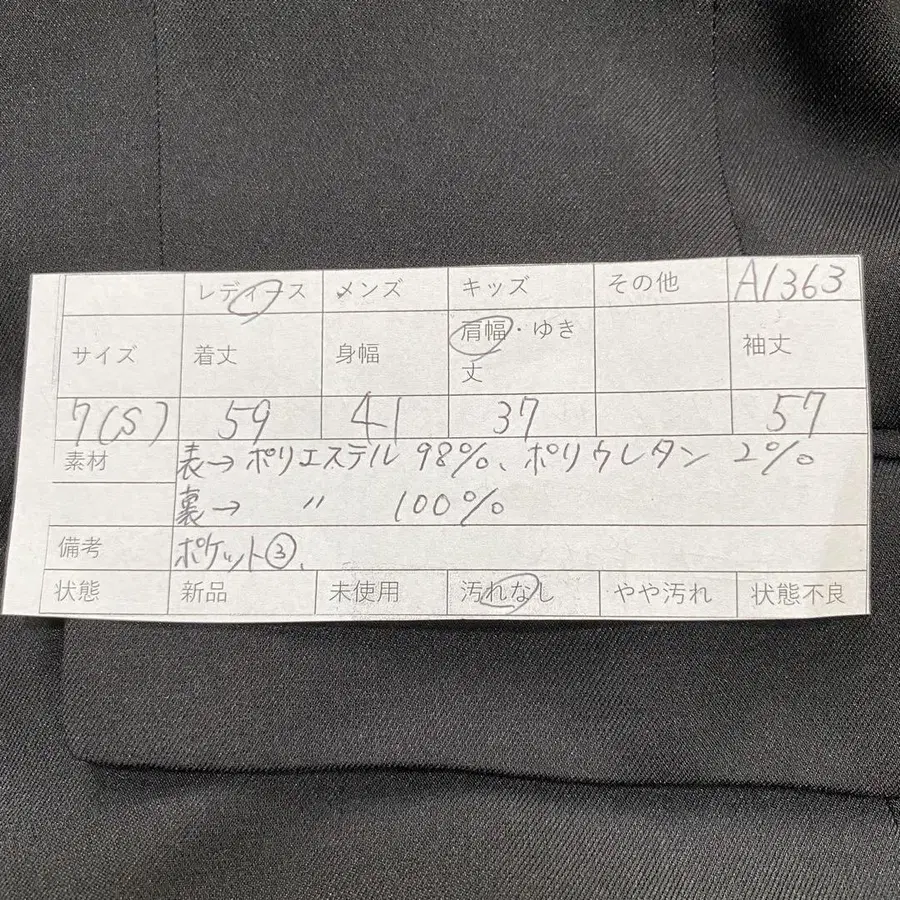 レディース メンズ キッズ その他 A1363
サイズ 着丈 身幅 肩幅・ゆき丈 袖丈
7(S) 59 41 37 57
素材 表→ポリエステル 98%、ポリウレタン 2%
裏→ 〃 100%
備考 ポケット③、
状態 新品 未使用 汚れなし やや汚れ 状態不良